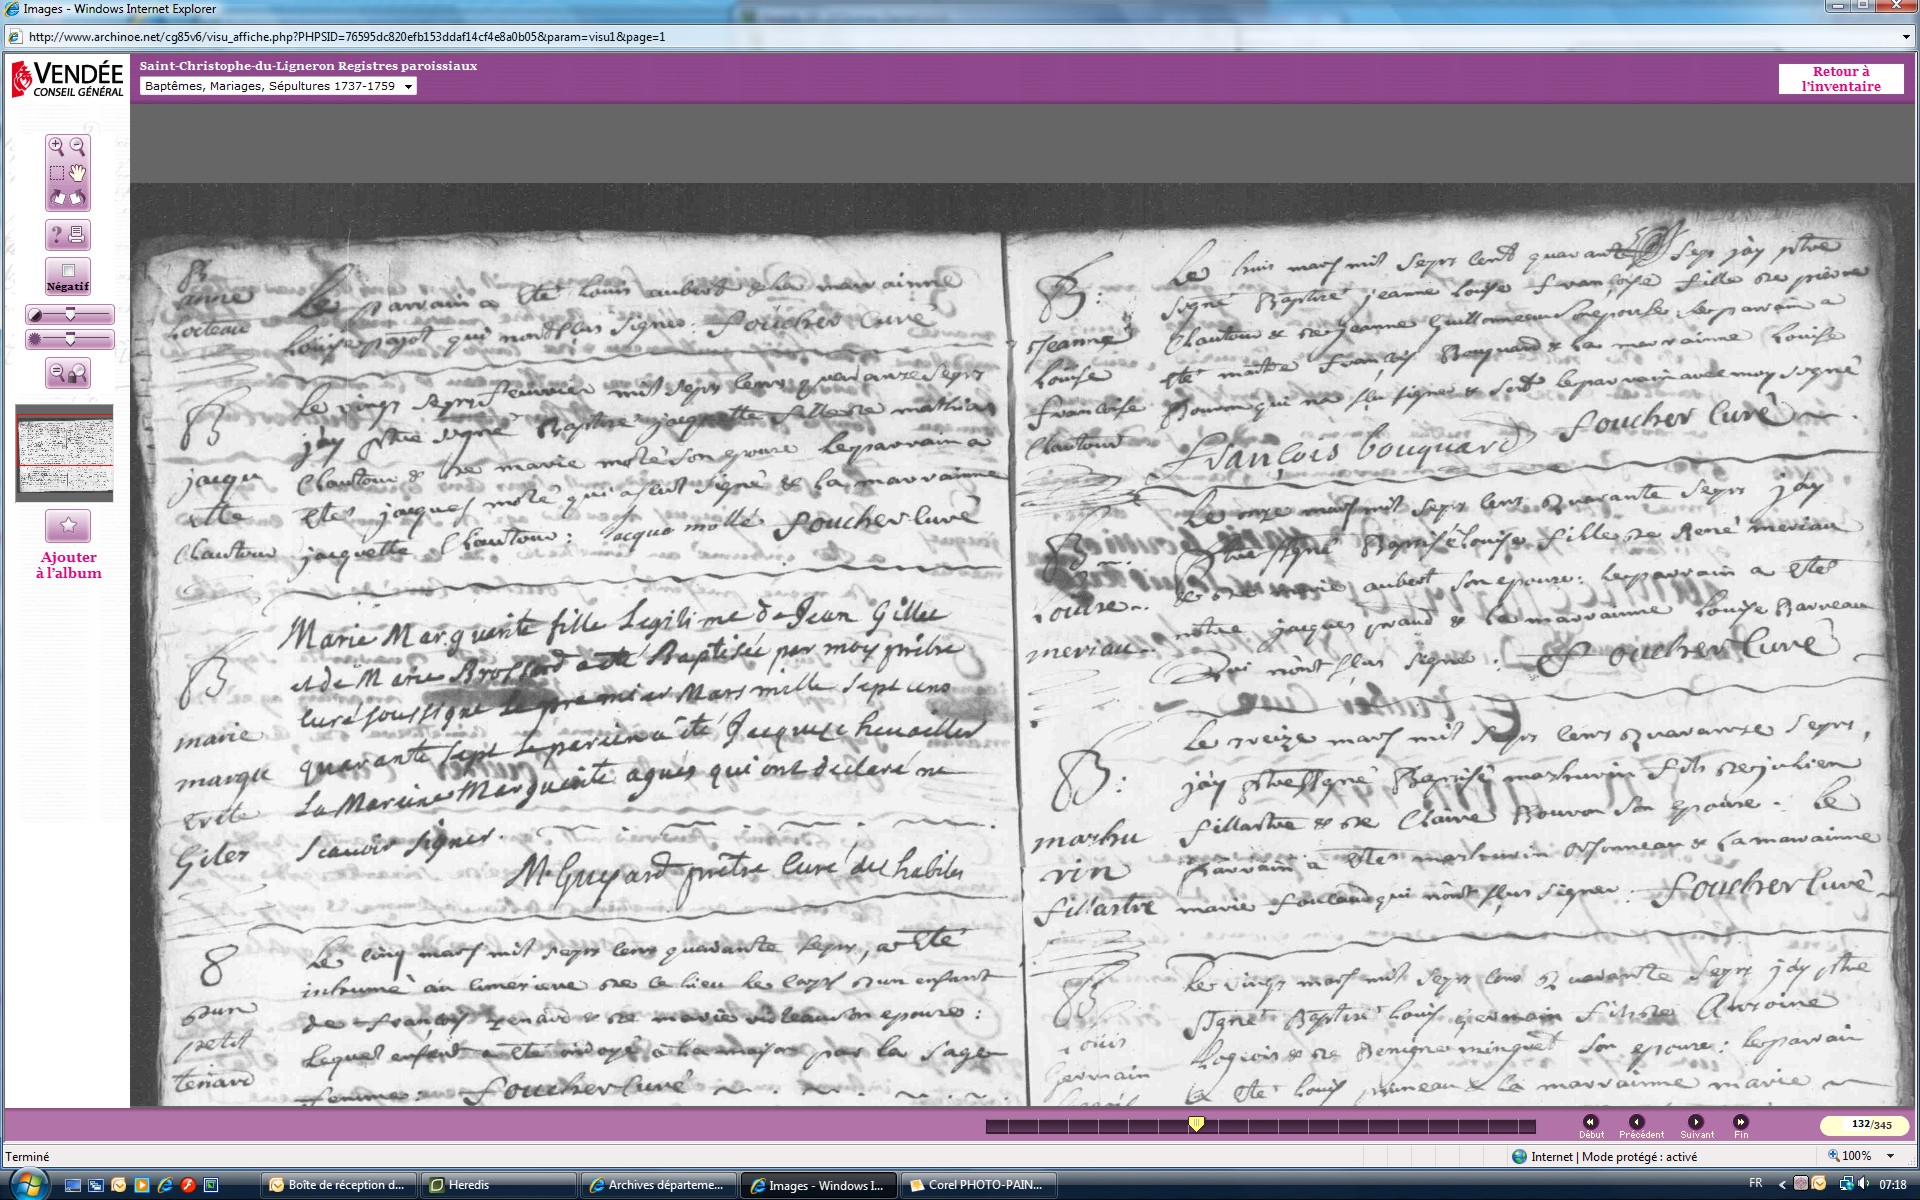 Images - Windows Internet Explorer
http://www.archinoe.net/cg85v6/visu_affiche.php?PHPSID=76595dc820efb153ddaf14cf4e8a0b05&param=visu1&page=1
VENDÉE
CONSEIL GÉNÉRAL
Saint-Christophe-du-Ligneron Registres paroissiaux
Baptêmes, Mariages, Sépultures 1737-1759
Retour à
l'inventaire
Négatif
Ajouter
à l'album
B
anne
Le parrain a Eté Louis aubert & la marrainne
Louise pajot qui n'ont sçus signer. Foucher Curé
B
jacqu
ette
Chautour
Le vingt sept feuvrier mil sept cens quarante sept
jäy ptre signé Baptisé jacquette fille de mathias
Chautour & de marie molé son epouse le parrain a
Etes jacques molé qui a sçut signé & la marrainne
jacquette Chautour: Jacque mollé Foucher Curé
B
marie
margu
erite
Giles
Marie Marguerite fille Legitime de Jean Gilles
et de Marie Brossard a eté Baptisée par moy prêtre
curé soussigné Le premier Mars mille sept cens
quarante sept Le parain a été Jacques
La Maraine Marguerite agues qui ont declaré ne
scavoir signer.
M. Guyard prêtre curé des habites
8
d'un
petit
tenard
Le cinq mars mil sept cens quarante sept, a Eté
inhumé au cimetiere de ce lieu le corps d'un enfant
de François & de marie son epouse:
Lequel enfant a eté ondoyé a la maison par la sage
femme: Foucher Curé
B:
Jeanne
Louise
Françoise
Chautour
Le huit mars mil sept cent quarante sept jäy ptre
signé Baptisé jeanne Louise Françoise fille de pierre
Chautour & de Jeanne Guillonneau son epouse le parrain a
été maitre François Bouquard & la marrainne Louise
Bouron qui na sçu signer & le parrain avec moy signé
François bouquard Foucher Curé
B
Louise
meriau
Le onze mars mil sept cens quarante sept jäy
Ptre signé Baptisé Louise fille de René meriau
& de marie aubert son epouse: le parrain a Etes
notre jacques praud & la marrainne Louise Barreau
Qui n'ont sçus signer: Foucher Curé
B:
mathu
rin
fillastre
Le treize mars mil sept cens quarante sept,
jäy ptre signé Baptisé mathurin fils de julien
fillastre & de Claire Bouron son epouse. Le
parrain a Etes mathurin & la marainne
marie qui n'ont sçus signer: Foucher Curé
B
Louis
Germain
Le vingt mars mil sept cens quarante sept jäy ptre
signé Baptisé Louis germain fils de Antoine
Logeois & de Benigne minguet son epouse: le parrain
a Eté Louis & la marrainne marie
Début
Précédent
Suivant
Fin
132/345
Terminé
Internet | Mode protégé : activé
100%
Boîte de réception d...
Heredis
Archives départeme...
Images - Windows I...
Corel PHOTO-PAIN...
FR
07:18